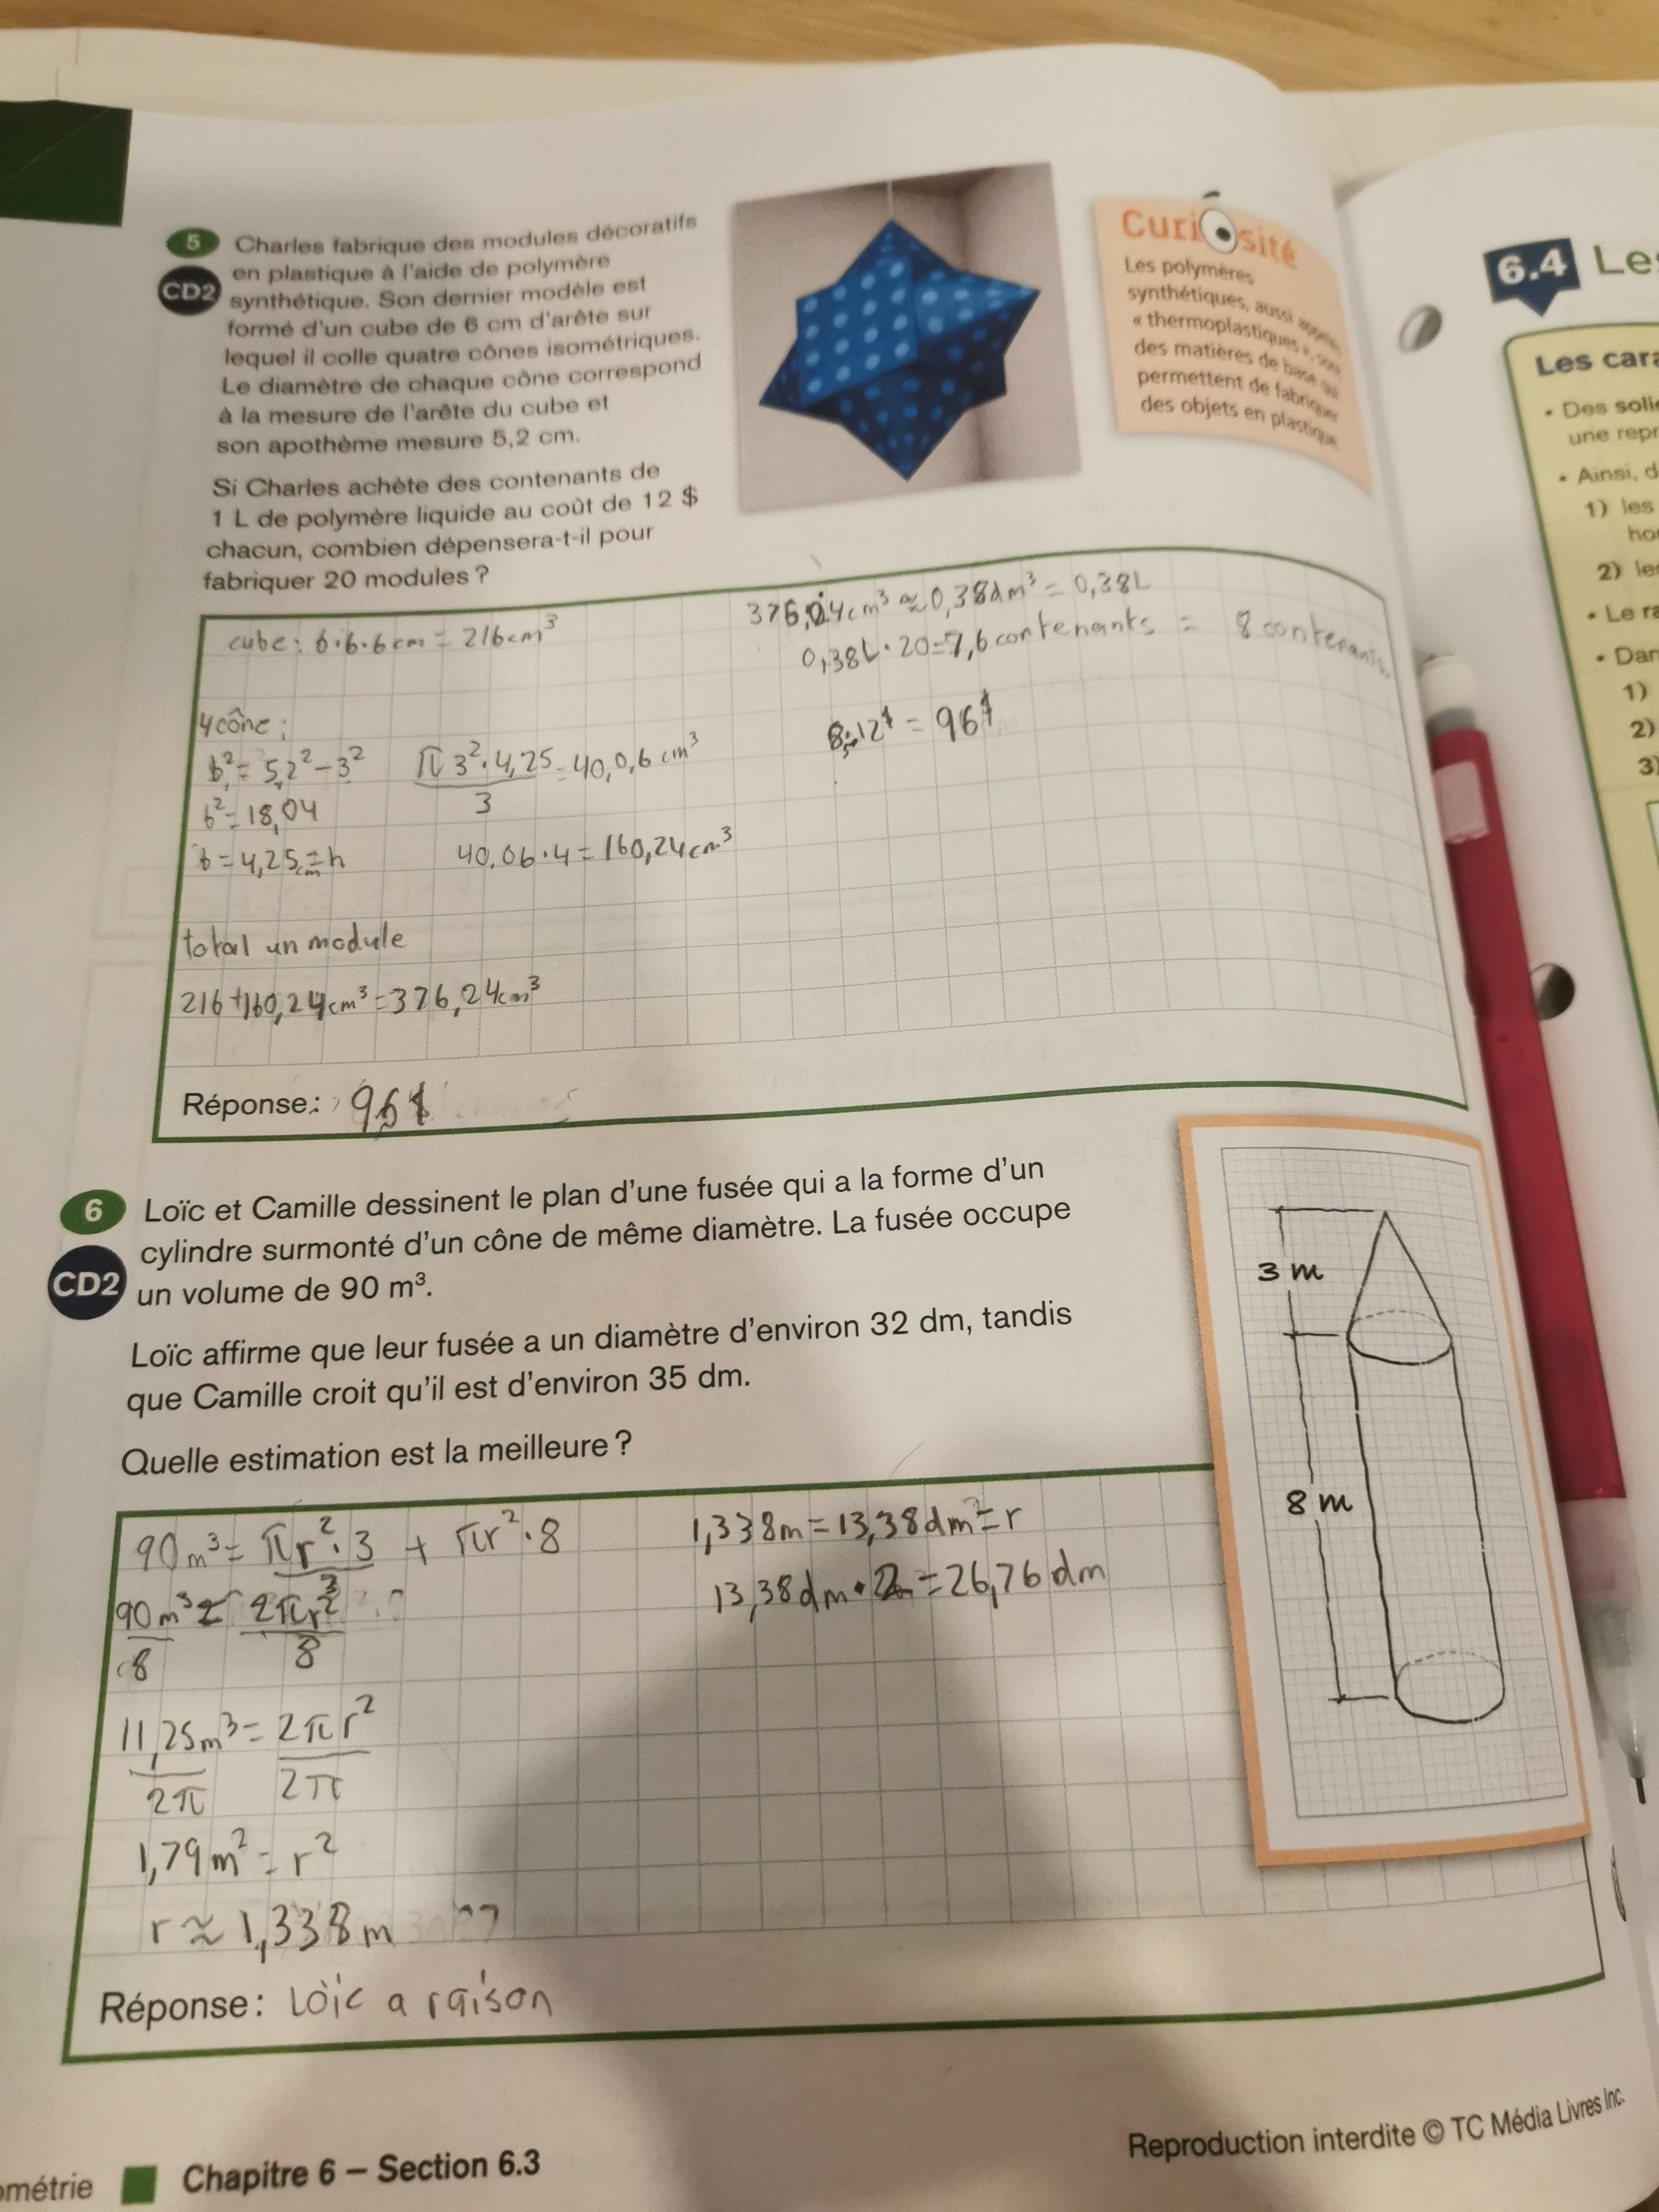 5 Charles fabrique des modules décoratifs
CD2 en plastique à l'aide de polymère
synthétique. Son dernier modèle est
formé d'un cube de 6 cm d'arête sur
lequel il colle quatre cônes isométriques.
Le diamètre de chaque cône correspond
à la mesure de l'arête du cube et
son apothème mesure 5,2 cm.
Si Charles achète des contenants de
1 L de polymère liquide au coût de 12 $
chacun, combien dépensera-t-il pour
fabriquer 20 modules ?
Curiosité
Les polymères
synthétiques, aussi appelés
« thermoplastiques », sont
des matières de base qui
permettent de fabriquer
des objets en plastique.
cube : 6·6·6 cm = 216 cm³
4 cône :
b² = 5,2² − 3²
b² = 18,04
b = 4,25 cm = h
π 3² · 4,25 = 40,0,6 cm³
3
40,06 · 4 = 160,24 cm³
total un module
216 + 160,24 cm³ = 376,24 cm³
376,24 cm³ ≈ 0,38 dm³ = 0,38 L
0,38 L · 20 = 7,6 contenants = 8 contenants
8 · 12 $ = 96 $
Réponse : 96 $
6 Loïc et Camille dessinent le plan d'une fusée qui a la forme d'un
cylindre surmonté d'un cône de même diamètre. La fusée occupe
CD2 un volume de 90 m³.
Loïc affirme que leur fusée a un diamètre d'environ 32 dm, tandis
que Camille croit qu'il est d'environ 35 dm.
Quelle estimation est la meilleure ?
3 m
8 m
90 m³ = πr² · 3 + πr² · 8
3
90 m³ = 2πr²
8 8
11,25 m³ = 2πr²
2π 2π
1,79 m² = r²
r ≈ 1,338 m
1,338 m = 13,38 dm = r
13,38 dm · 2 = 26,76 dm
Réponse : Loïc a raison
ométrie Chapitre 6 – Section 6.3
Reproduction interdite © TC Média Livres Inc.
6.4 Les
Les cara
• Des soli
une repr
• Ainsi, d
1) les
ho
2) le
• Le ra
• Dan
1)
2)
3)